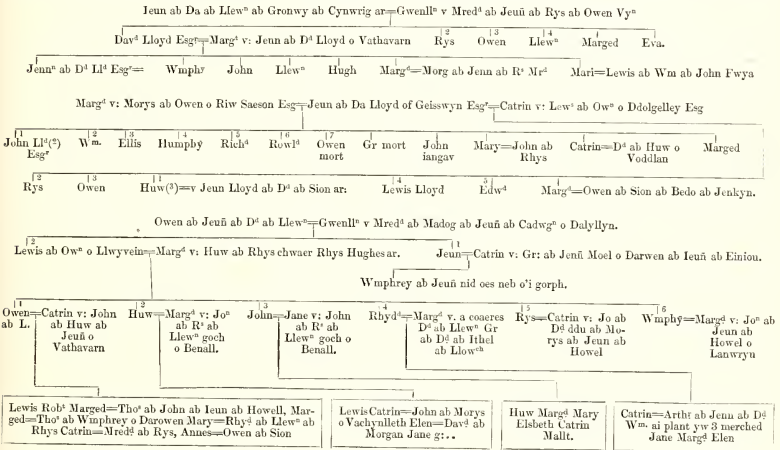 Jeun ab Da ab Llewⁿ ab Gronwy ab Cynwrig ar=Gwenllⁿ v Mredᵈ ab Jeuñ ab Rys ab Owen Vyⁿ
Davᵈ Lloyd Esgʳ=Margᵈ v: Jenn ab Dᵈ Lloyd o Vathavarn 2 Rys 3 Owen 4 Llewⁿ Marged Eva.
Jennⁿ ab Dᵈ Llᵈ Esgʳ= Wmphy John Llewⁿ Hugh Margᵈ=Morg ab Jenn ab Rˢ Mrᵈ Mari=Lewis ab Wm ab John Fwya
Margᵈ v: Morys ab Owen o Riw Saeson Esg=Jeun ab Da Lloyd of Geisswyn Esgʳ=Catrin v: Lewˢ ab Owⁿ o Ddolgelley Esg
1 2 3 4 5 6 7
John Llᵈ(²) Wᵐ. Ellis Humphÿ Richᵈ Rowlᵈ Owen Gr mort John Mary=John ab Catrin=Dᵈ ab Huw o Marged
Esgʳ mort iangav Rhys Voddlan
2 3 1 4 5
Rys Owen Huw(³)=v Jeun Lloyd ab Dᵈ ab Sion ar: Lewis Lloyd Edwᵈ Margᵈ=Owen ab Sion ab Bedo ab Jenkyn.
Owen ab Jeuñ ab Dᵈ ab Llewⁿ=Gwenllⁿ v Mredᵈ ab Madog ab Jeuñ ab Cadwgⁿ o Dalyllyn.
2 1
Lewis ab Owⁿ o Llwyvein=Margᵈ v: Huw ab Rhys chwaer Rhys Hughes ar. Jeun=Catrin v: Gr: ab Jenñ Moel o Darwen ab Ieuñ ab Einiou.
Wmphrey ab Jeuñ nid oes neb o'i gorph.
1 2 3 4 5 6
Owen=Catrin v: John Huw=Margᵈ v: Joⁿ John=Jane v: John Rhydᵈ=Margᵈ v. a coaeres Rys=Catrin v: Jo ab Wmphÿ=Margᵈ v: Joⁿ ab
ab L. ab Huw ab ab Rˢ ab ab Rˢ ab Dᵈ ab Llewⁿ Gr Dᵈ ddu ab Mo- Jeun ab
Jeuñ o Llewⁿ goch Llewⁿ goch o ab Dᵈ ab Ithel rys ab Jeun ab Howel o
Vathavarn o Benall. Benall. ab Llowᶜʰ Howel Lanwryn
Lewis Robᵗ Marged=Thoˢ ab John ab Ieun ab Howell, Mar-
ged=Thoˢ ab Wmphrey o Darowen Mary=Rhyᵈ ab Llewⁿ ab
Rhys Catrin=Mredᵈ ab Rys, Annes=Owen ab Sion
Lewis Catrin=John ab Morys
o Vachynlleth Elen=Davᵈ ab
Morgan Jane g:..
Huw Margᵈ Mary
Elsbeth Catrin
Mallt.
Catrin=Arthʳ ab Jenn ab Dᵈ
Wᵐ. ai plant yw 3 merched
Jane Margᵈ Elen